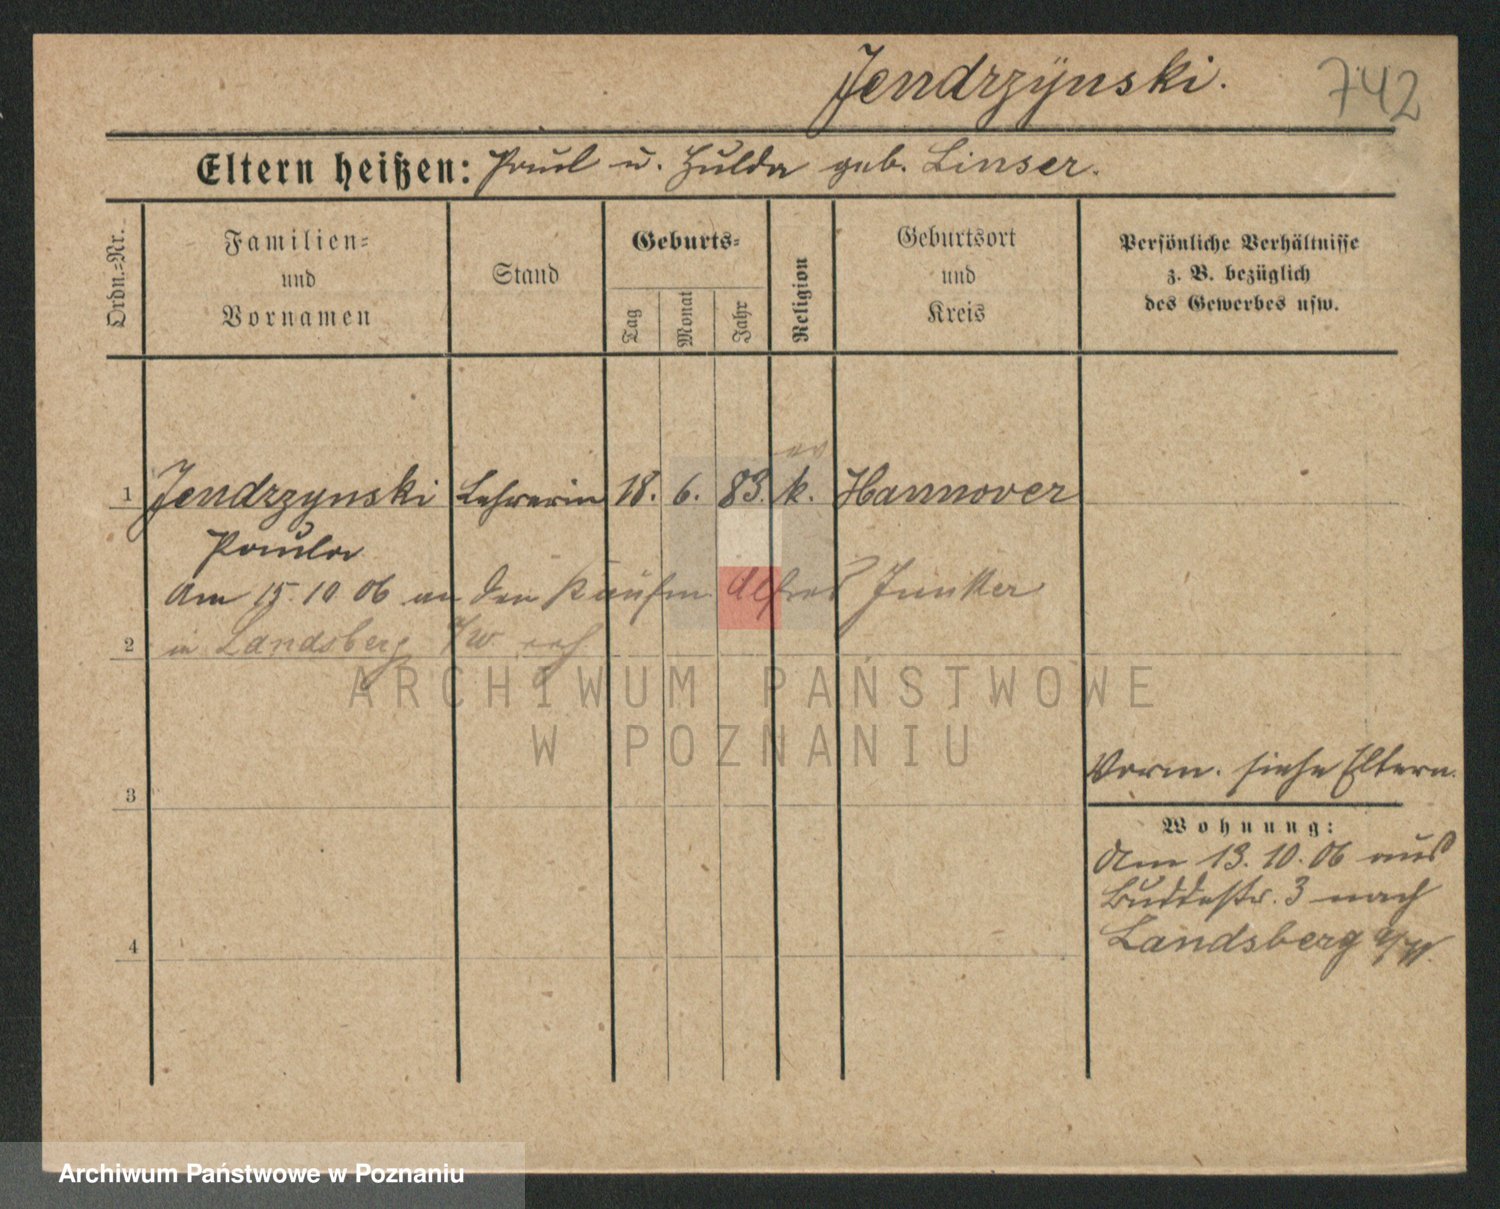 Jendrzÿnski. 742
Eltern heißen: Paul u. Hulda geb. Linser.
Ordn.=Nr.
Familien=
und
Vornamen
Stand
Geburts=
Tag
Monat
Jahr
Religion
Geburtsort
und
Kreis
Persönliche Verhältnisse
z. B. bezüglich
des Gewerbes usw.
ev
1 Jendrzynski Lehrerin 18. 6. 83. k. Hannover
Paula
Am 15.10 06 an den Kaufm. Alfred Junker
2 in Landsberg a/W
ARCHIWUM PAŃSTWOWE
W POZNANIU
3
Vorm. siehe Eltern.
Wohnung:
Am 13.10.06 aus
Buddestr. 3 nach
4 Landsberg a/W.
Archiwum Państwowe w Poznaniu